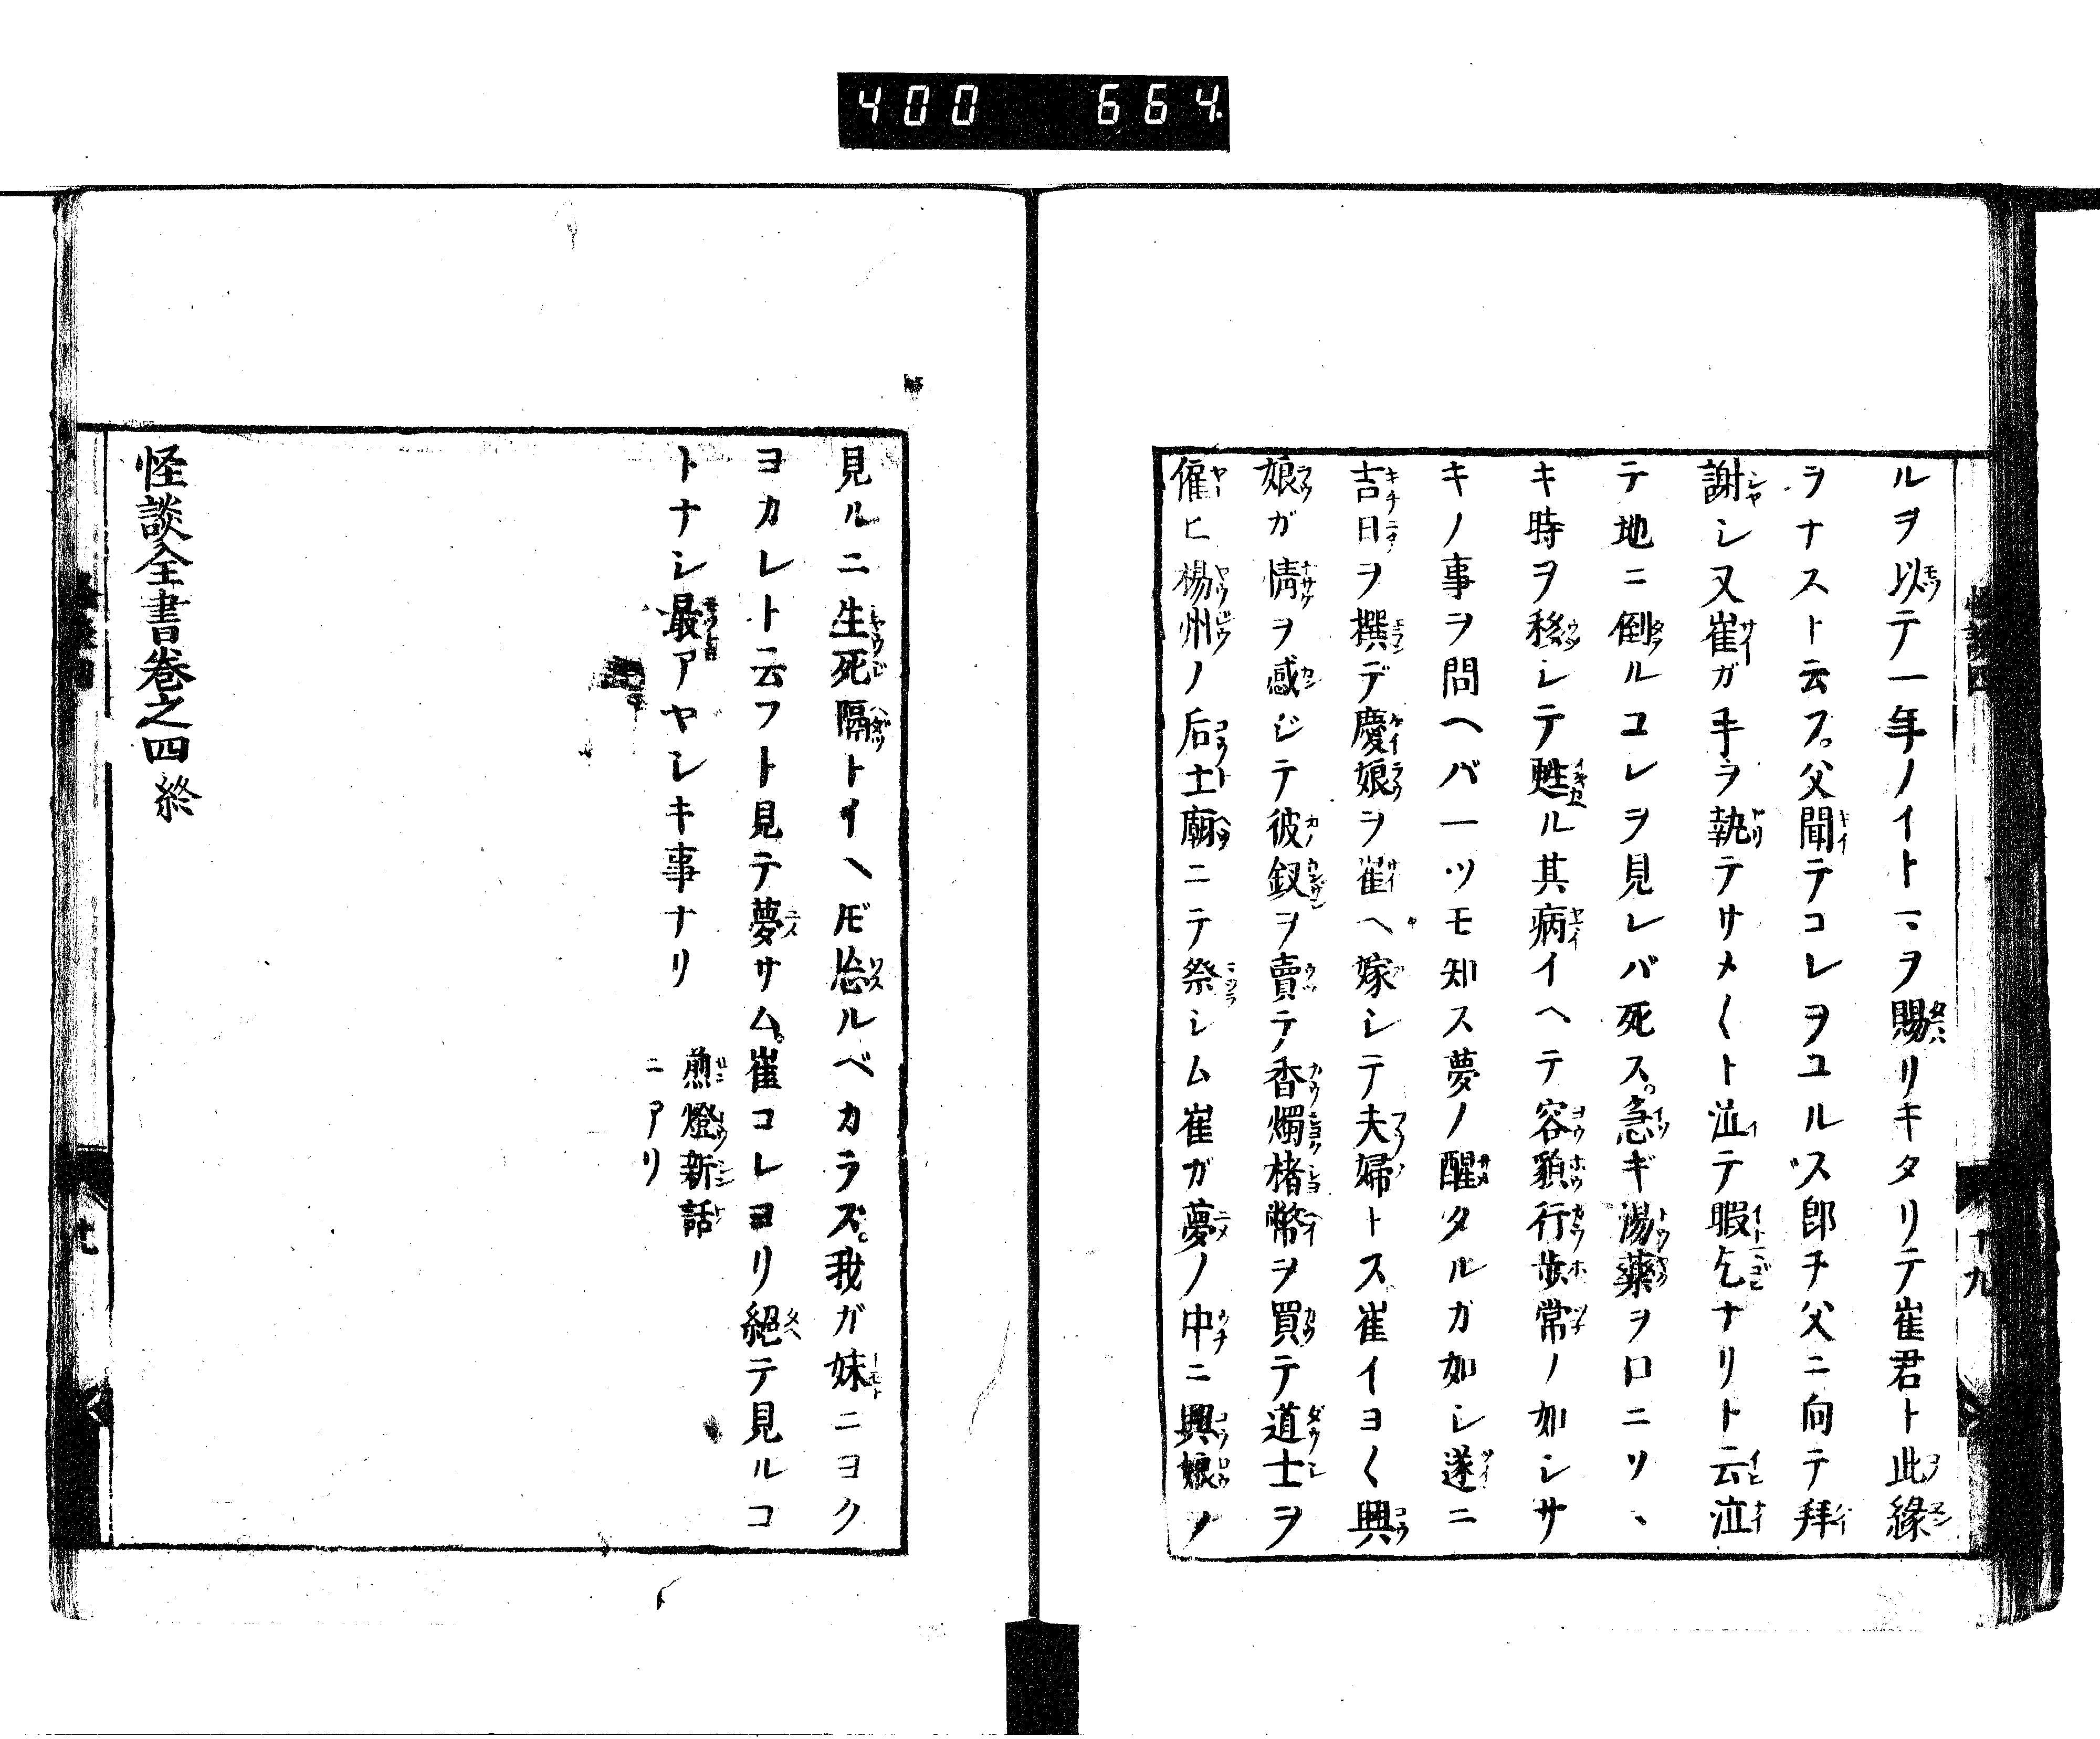 400 664
ルヲ以テ一年ノイトマヲ賜リキタリテ崔君ト此縁
ヲナスト云フ。父聞テコレヲユルス即チ父ニ向テ拜
謝シ又崔ガ手ヲ執テサメ〱ト泣テ暇乞ナリト云泣
テ地ニ倒ルコレヲ見レバ死ス。急ギ湯藥ヲ口ニソヽ
キ時ヲ移シテ甦ル其病イヘテ容貌行歩常ノ如シサ
キノ事ヲ問ヘバ一ツモ知ス夢ノ醒タルガ如シ遂ニ
吉日ヲ撰デ慶娘ヲ崔ヘ嫁シテ夫婦トス崔イヨ〱興
娘ガ情ヲ感ジテ彼釵ヲ賣テ香燭楮幣ヲ買テ道士ヲ
催ヒ楊州ノ后土廟ニテ祭シム崔ガ夢ノ中ニ興娘ノ
十九
見ルニ生死隔トイヘ𪜈忘ルベカラズ。我ガ妹ニヨク
ヨカレト云フト見テ夢サム。崔コレヨリ絕テ見ルコ
トナシ最アヤシキ事ナリ 煎燈新話
ニアリ
怪談全書卷之四終